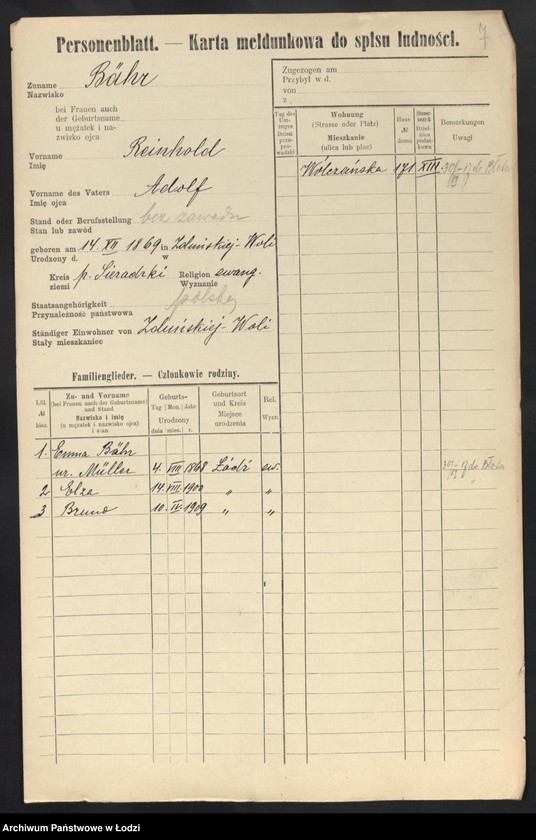 7
Personenblatt. — Karta meldunkowa do spisu ludności.
Zuname Bähr
Nazwisko
bei Frauen auch
der Geburtsname
u mężatek i na-
zwisko ojca
Vorname Reinhold
Imię
Vorname des Vaters Adolf
Imię ojca
Stand oder Berufsstellung bez zawodu
Stan lub zawód
geboren am 14. XII 1869 in Zduńskiej-Woli
Urodzony d. w
Kreis p. Sieradzki Religion ewang.
ziemi Wyznanie
Staatsangehörigkeit polska
Przynależność państwowa
Ständiger Einwohner von Zduńskiej-Woli
Stały mieszkaniec
Zugezogen am
Przybył w d.
von
z
Tag des Um-zuges Dzień prze-pro-wadzki
Wohnung (Strasse oder Platz) Mieszkanie (ulica lub plac)
Haus № domu
Bemerkungen Uwagi
Wólczańska 171 XIII
Familienglieder. — Członkowie rodziny.
Lfd. № bież.
Zu- und Vorname (bei Frauen auch der Geburtsname) und Stand Nazwisko i imię (u mężatek i nazwisko ojca) i stan
Geburts- Tag | Mon. | Jahr Urodzony dnia | mies. | r.
Geburtsort und Kreis Miejsce urodzenia
Rel. Wyzn.
1. Emma Bähr
ur. Müller 4. VIII 1868 Łódź ew.
2 Elza 14. VIII 1900 " "
3 Bruno 10. IV 1909 " "
Archiwum Państwowe w Łodzi